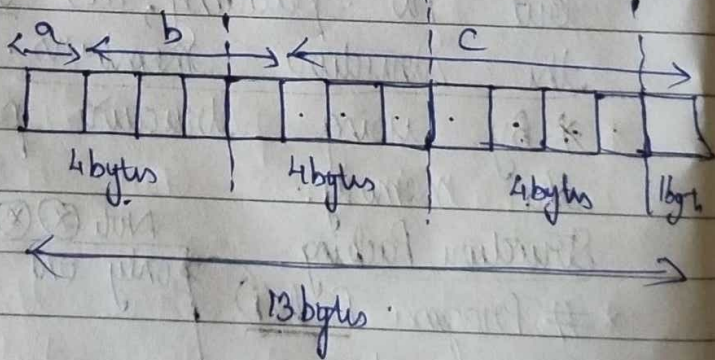 a b c
4bytes 4bytes 4bytes 1byt
13bytes